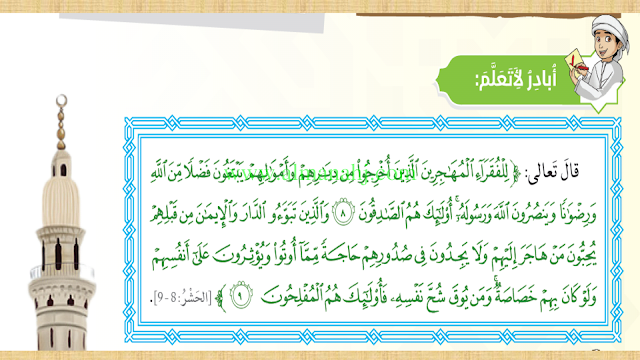 أُبادِرُ لِأَتَعَلَّمَ:
قالَ تَعالى: ﴿ لِلْفُقَرَآءِ ٱلْمُهَٰجِرِينَ ٱلَّذِينَ أُخْرِجُوا۟ مِن دِيَٰرِهِمْ وَأَمْوَٰلِهِمْ يَبْتَغُونَ فَضْلًا مِّنَ ٱللَّهِ
وَرِضْوَٰنًا وَيَنصُرُونَ ٱللَّهَ وَرَسُولَهُۥٓ ۚ أُو۟لَٰٓئِكَ هُمُ ٱلصَّٰدِقُونَ ٨ وَٱلَّذِينَ تَبَوَّءُو ٱلدَّارَ وَٱلْإِيمَٰنَ مِن قَبْلِهِمْ
يُحِبُّونَ مَنْ هَاجَرَ إِلَيْهِمْ وَلَا يَجِدُونَ فِى صُدُورِهِمْ حَاجَةً مِّمَّآ أُوتُوا۟ وَيُؤْثِرُونَ عَلَىٰٓ أَنفُسِهِمْ
وَلَوْ كَانَ بِهِمْ خَصَاصَةٌ ۚ وَمَن يُوقَ شُحَّ نَفْسِهِۦ فَأُو۟لَٰٓئِكَ هُمُ ٱلْمُفْلِحُونَ ٩ ﴾ [الحَشْرُ: 8-9].